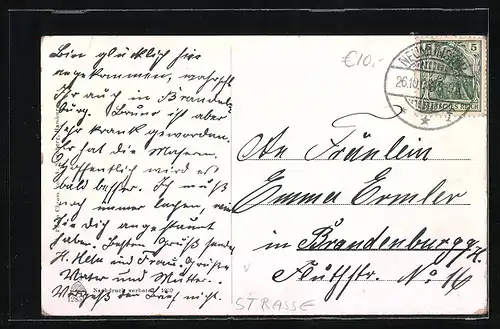 Bin glücklich hier
angekommen,
Ihr auch in Brandenburg.
Bruno ist aber
sehr krank geworden.
Er hat die Masern.
Hoffentlich wird es
bald besser. Ich muß
noch immer lachen, wie
Sie Dich angestaunt
haben. Besten Gruß sendet
H. Helm und Frau. Grüße
Vater und Mutter.
Vergeß den Brief nicht.
Nachdruck verboten 1909
€10,-
5
26.10.
An Fräulein
Emma Ermler
in Brandenburg a/H.
Straße No 16
STRASSE